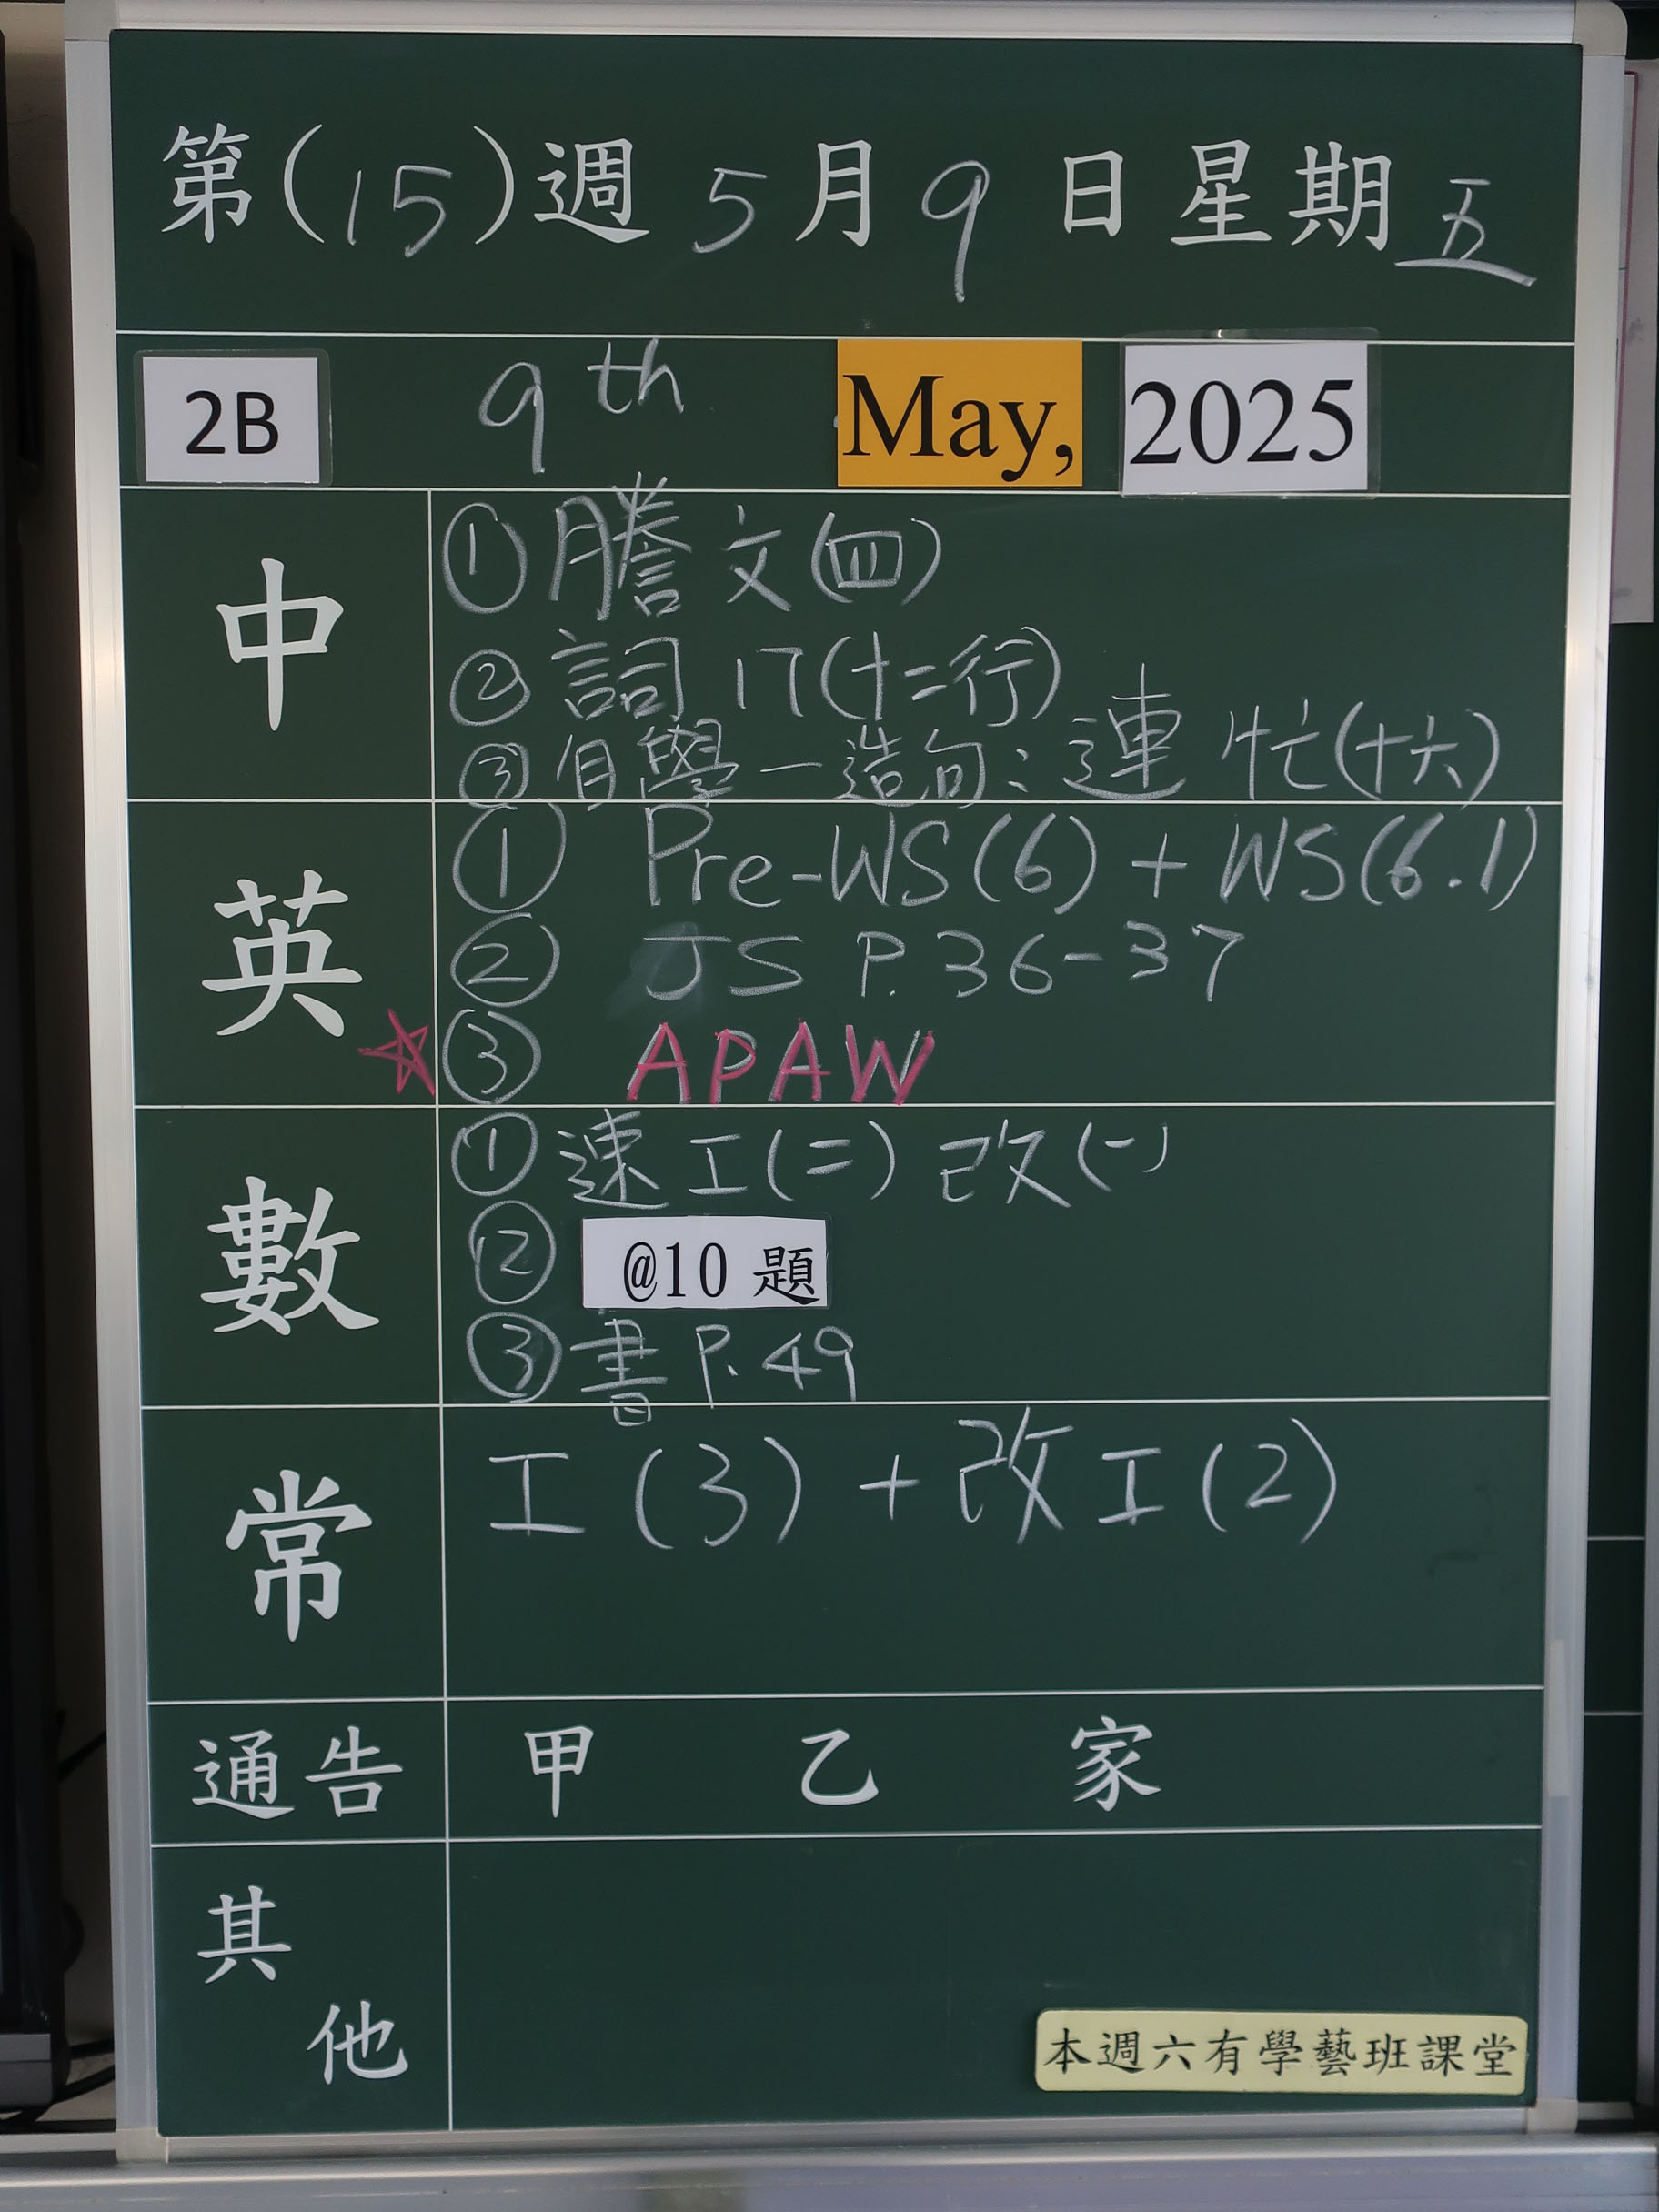 第(15)週 5月9日星期五
2B 9th May, 2025
中
①謄文(四)
②詞17(十二行)
③自學一造句:連忙(十六)
英
① Pre-WS(6) + WS(6.1)
② JS P.36-37
☆③ APAW
數
①速工(二)改(一)
② @10題
③書 P.49
常
工(3) + 改工(2)
通告 甲 乙 家
其他
本週六有學藝班課堂